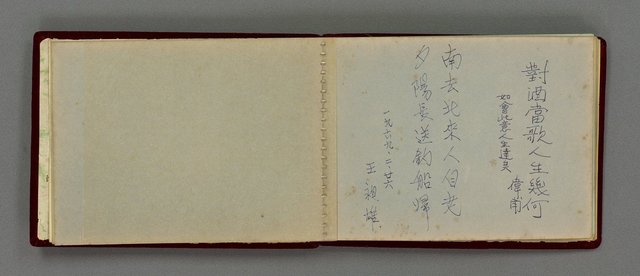 對酒當歌人生幾何
如會此意人生達矣
偉甫
南去北來人自老
夕陽長送釣船歸
一九六九.二.廿六
王祖雄